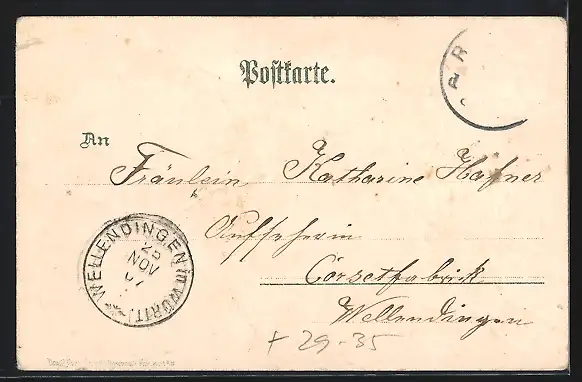 Postkarte.
An
Fräulein Katharine Hafner
Aufseherin
Corsetfabrik
Wellendingen
WELLENDINGEN (WÜRTT.)
25
NOV
+ 29-35